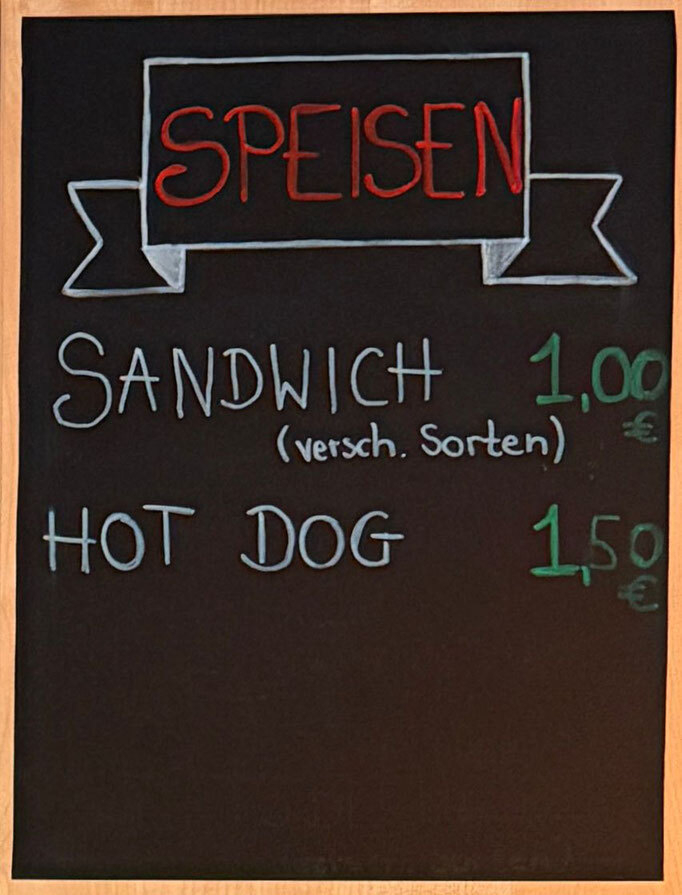 SPEISEN
SANDWICH 1,00 €
(versch. Sorten)
HOT DOG 1,50 €